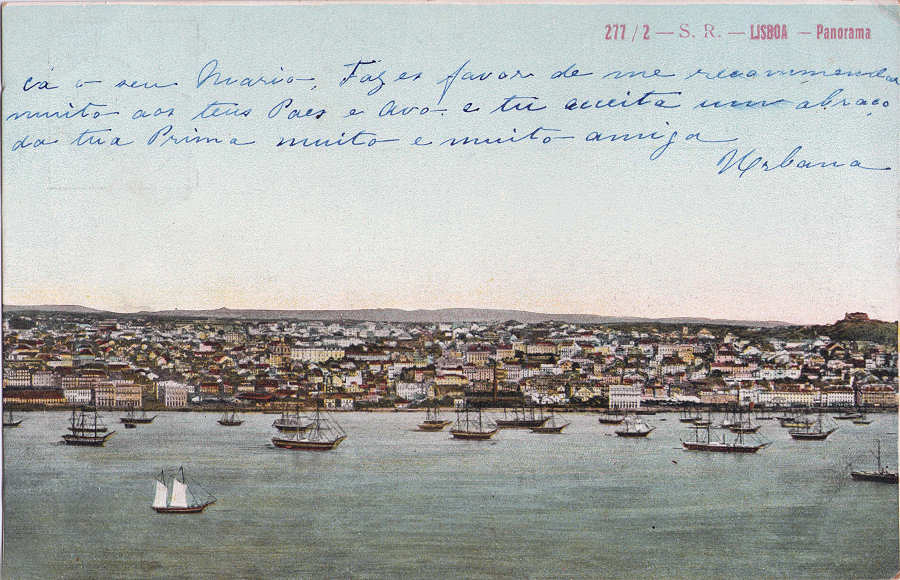 277/2 — S. R. — LISBOA — Panorama
ca o seu Mario, Fazes favor de me recommendar
muito aos teus Paes e Avó e tu aceita um abraço
da tua Prima muito e muito amiga
Urbana